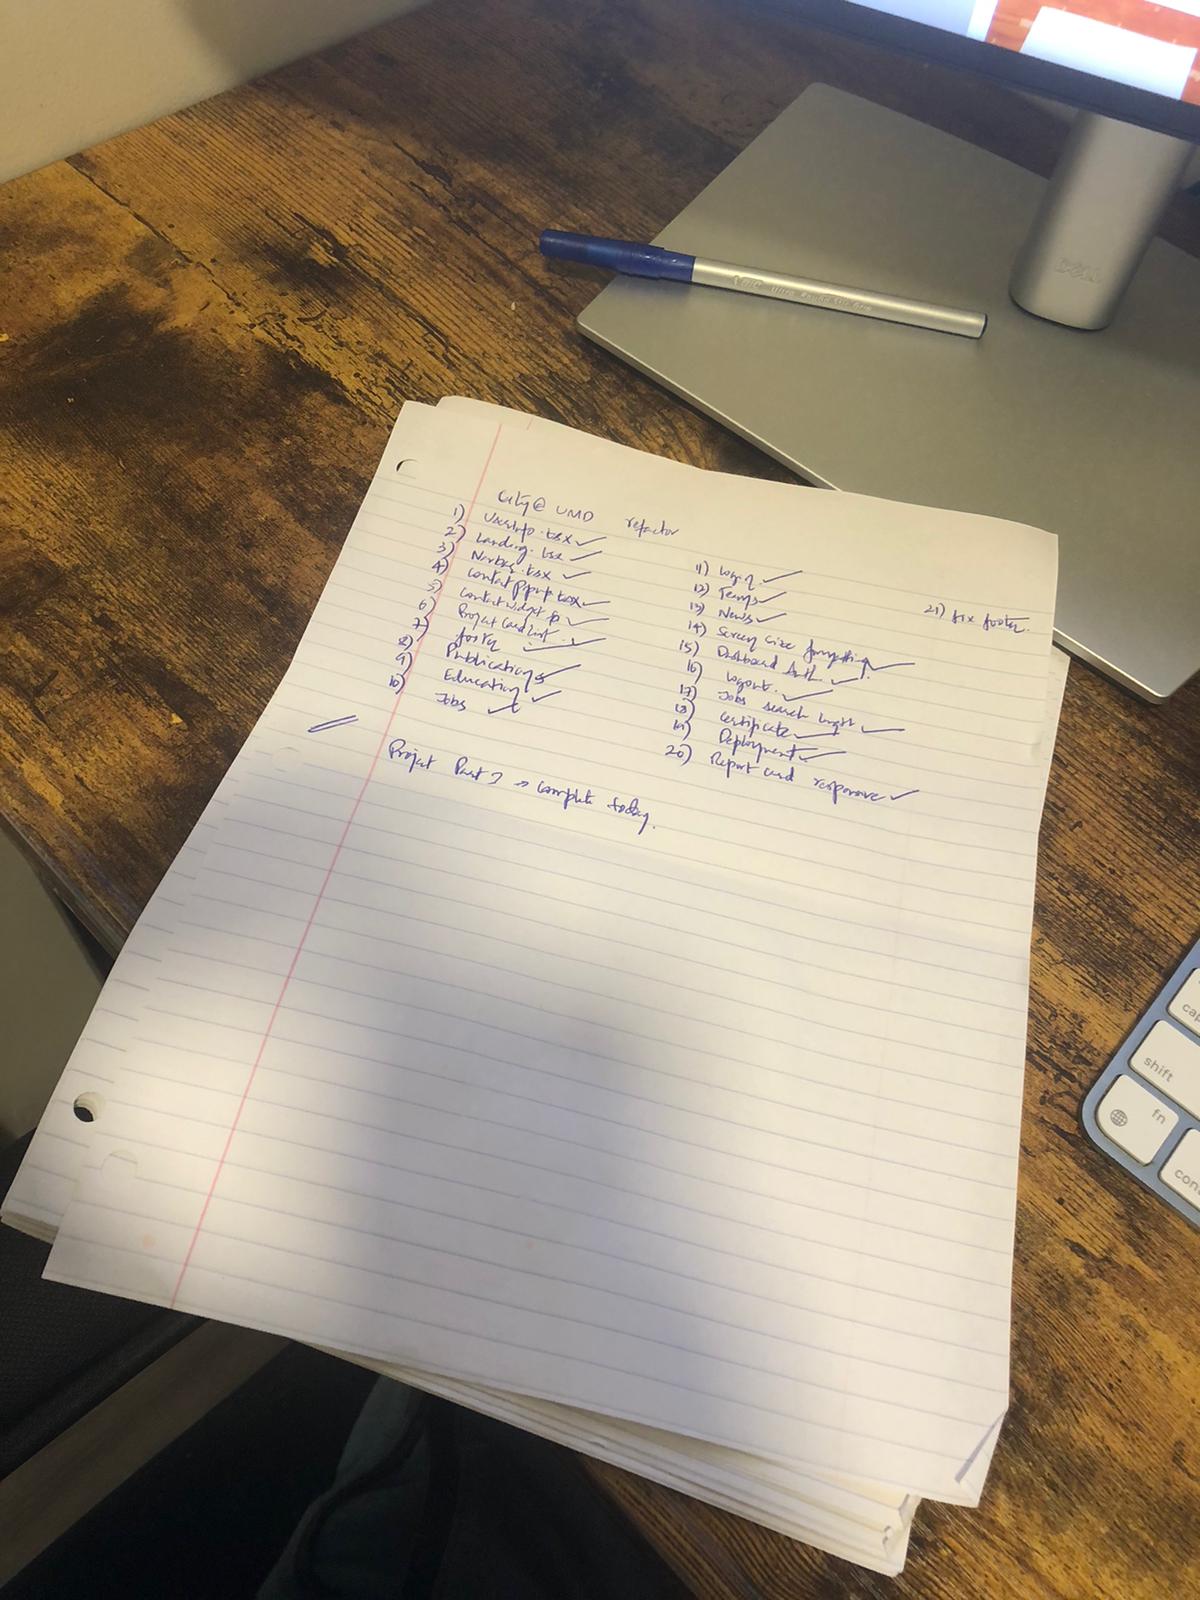 @ UMD refactor
1) UserInfo.tsx ✓
2) Landing.tsx ✓
3) Navbar.tsx ✓
4) Contact popup.tsx ✓
5) Contact widget ✓
6) Project Card List ✓
7) footer ✓
8) Publications ✓
9) Education ✓
10) Jobs ✓
11) Login ✓
12) Terms ✓
13) News ✓
14) Screen size formatting ✓
15) Dashboard Auth. ✓
16) Logout. ✓
17) Jobs search ✓
18) Certificate ✓
19) Deployment ✓
20) Report card responsive ✓
21) fix footer.
Project Part → complete today.
DELL
shift
fn